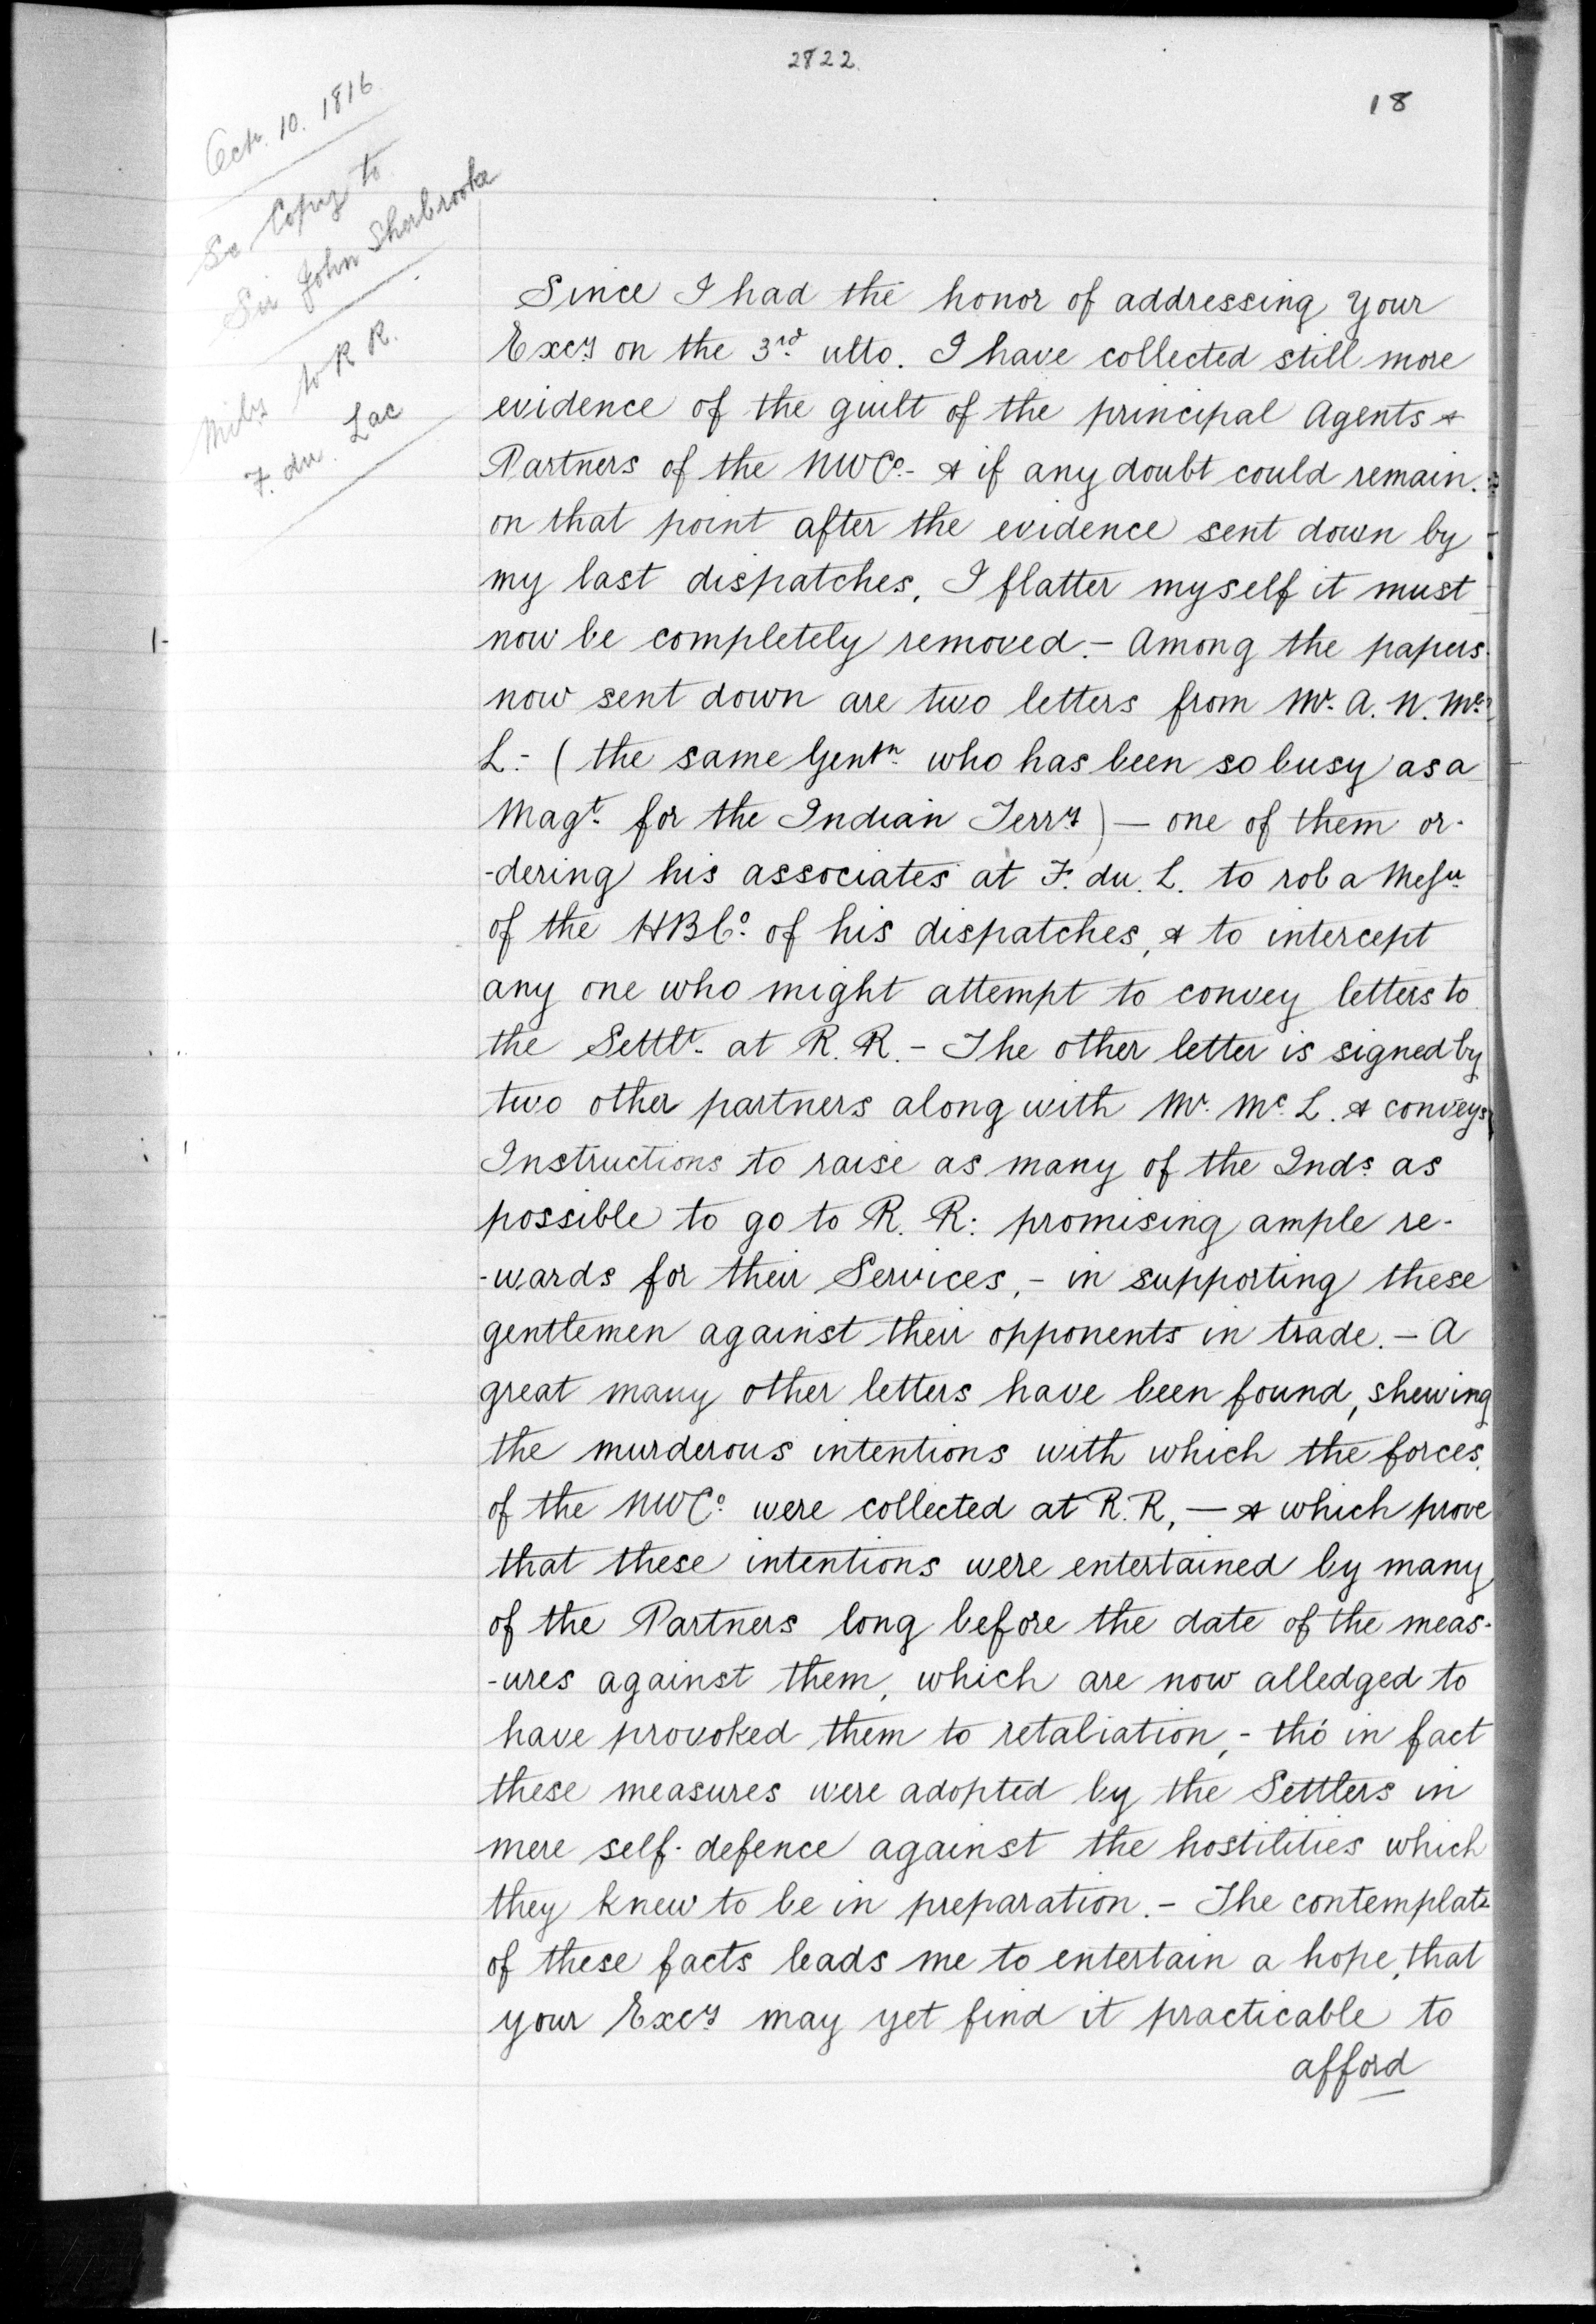 2822.
18
Octr. 10. 1816.
Se Copy to
Sir John Sherbrooke
to R R.
F. du. Lac
Since I had the honor of addressing your
Excy on the 3rd ulto. I have collected still more
evidence of the guilt of the principal Agents &
Partners of the NWCo - & if any doubt could remain.
on that point after the evidence sent down by
my last dispatches, I flatter myself it must
now be completely removed. - Among the papers
now sent down are two letters from Mr. A. N. Mc
L. - (the same Gentn. who has been so busy as a
Magt. for the Indian Terry) — one of them or-
-dering his associates at F. du. L. to rob a Messr
of the HBCo. of his dispatches, & to intercept
any one who might attempt to convey letters to
the Settlt. at R. R. - The other letter is signed by
two other partners along with Mr. Mc. L. & conveys
Instructions to raise as many of the Inds. as
possible to go to R. R: promising ample re-
-wards for their Services, - in supporting these
gentlemen against their opponents in trade. - A
great many other letters have been found, shewing
the murderous intentions with which the forces
of the NWCo. were collected at R. R, — & which prove
that these intentions were entertained by many
of the Partners long before the date of the meas-
-ures against them, which are now alledged to
have provoked them to retaliation, - tho' in fact
these measures were adopted by the Settlers in
mere self-defence against the hostilities which
they knew to be in preparation. - The contemplatn
of these facts leads me to entertain a hope, that
your Excy may yet find it practicable to
afford